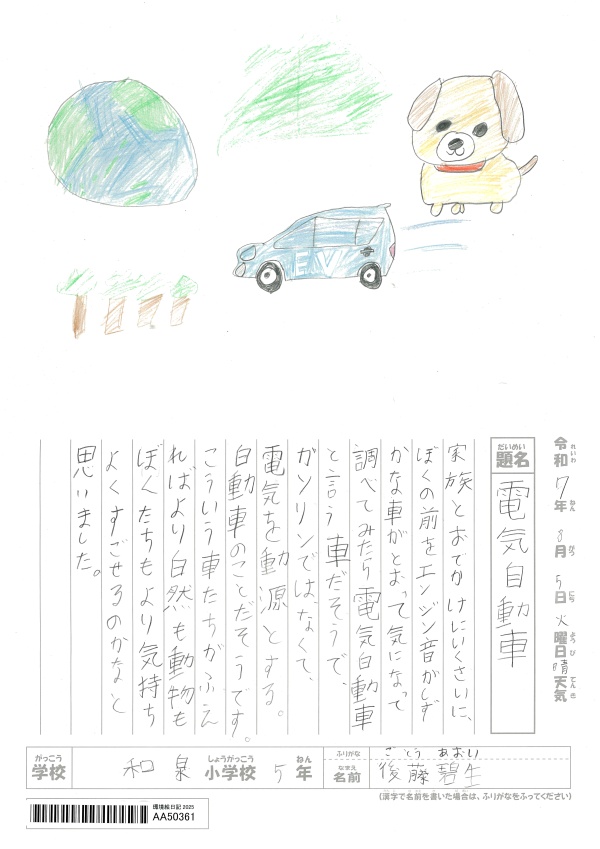 EV
令和7年8月5日火曜日晴天気
れいわ ねん がつ にち ようび てんき
だいめい
題名 電気自動車
家族とおでかけにいくさいに、
ぼくの前をエンジン音がしず
かな車がとおって気になって
調べてみたら電気自動車
と言う車だそうで、
ガソリンではなくて、
電気を動源とする。
自動車のことだそうです。
こういう車たちがふえ
ればより自然も動物も
ぼくたちもより気持ち
よくすごせるのかなと
思いました。
がっこう しょうがっこう ねん ふりがな ごとう あおい
学校 和泉 小学校 5年 なまえ 名前 後藤碧生
(漢字で名前を書いた場合は、ふりがなをふってください)
環境絵日記 2025
AA50361